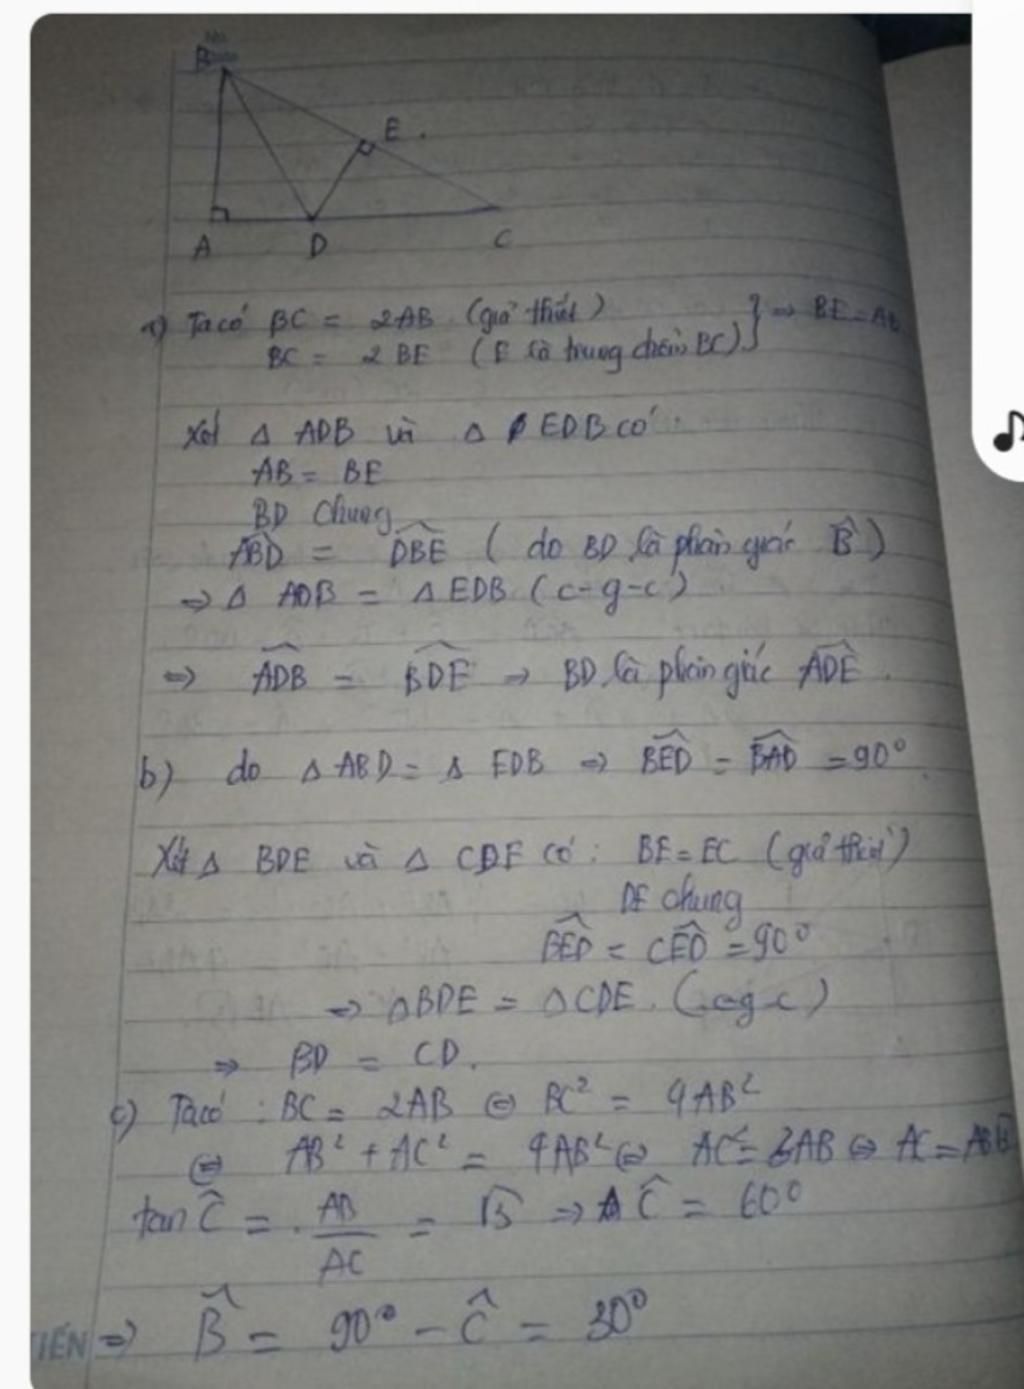 B
E
A D C
a) Ta có BC = 2AB (giả thiết)
BC = 2BE (E là trung điểm BC) } => BE = AB
Xét Δ ADB và Δ EDB có
AB = BE
BD chung
ABD = DBE (do BD là phân giác B)
=> Δ ADB = Δ EDB (c-g-c)
=> ADB = BDE => BD là phân giác ADE.
b) do Δ ABD = Δ EDB => BED = BAD = 90°
Xét Δ BDE và Δ CDE có: BE = EC (giả thiết)
DE chung
BED = CED = 90°
=> Δ BDE = Δ CDE (c-g-c)
=> BD = CD.
c) Ta có: BC = 2AB ⇔ BC² = 4AB²
⇔ AB² + AC² = 4AB² ⇔ AC² = 3AB ⇔ AC = AB√3
tan C = AB/AC = √3 => C = 60°
TIẾN => B = 90° - C = 30°